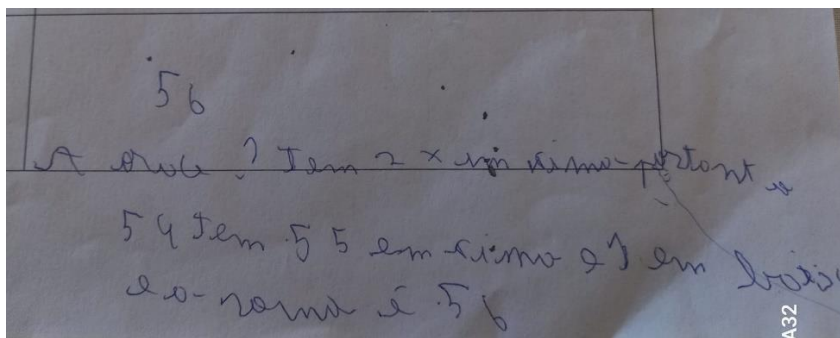 56
A ? Tem 2 x em sima portant
54 Tem 55 em sima e 1 em baiso
e o norma é 56
A32